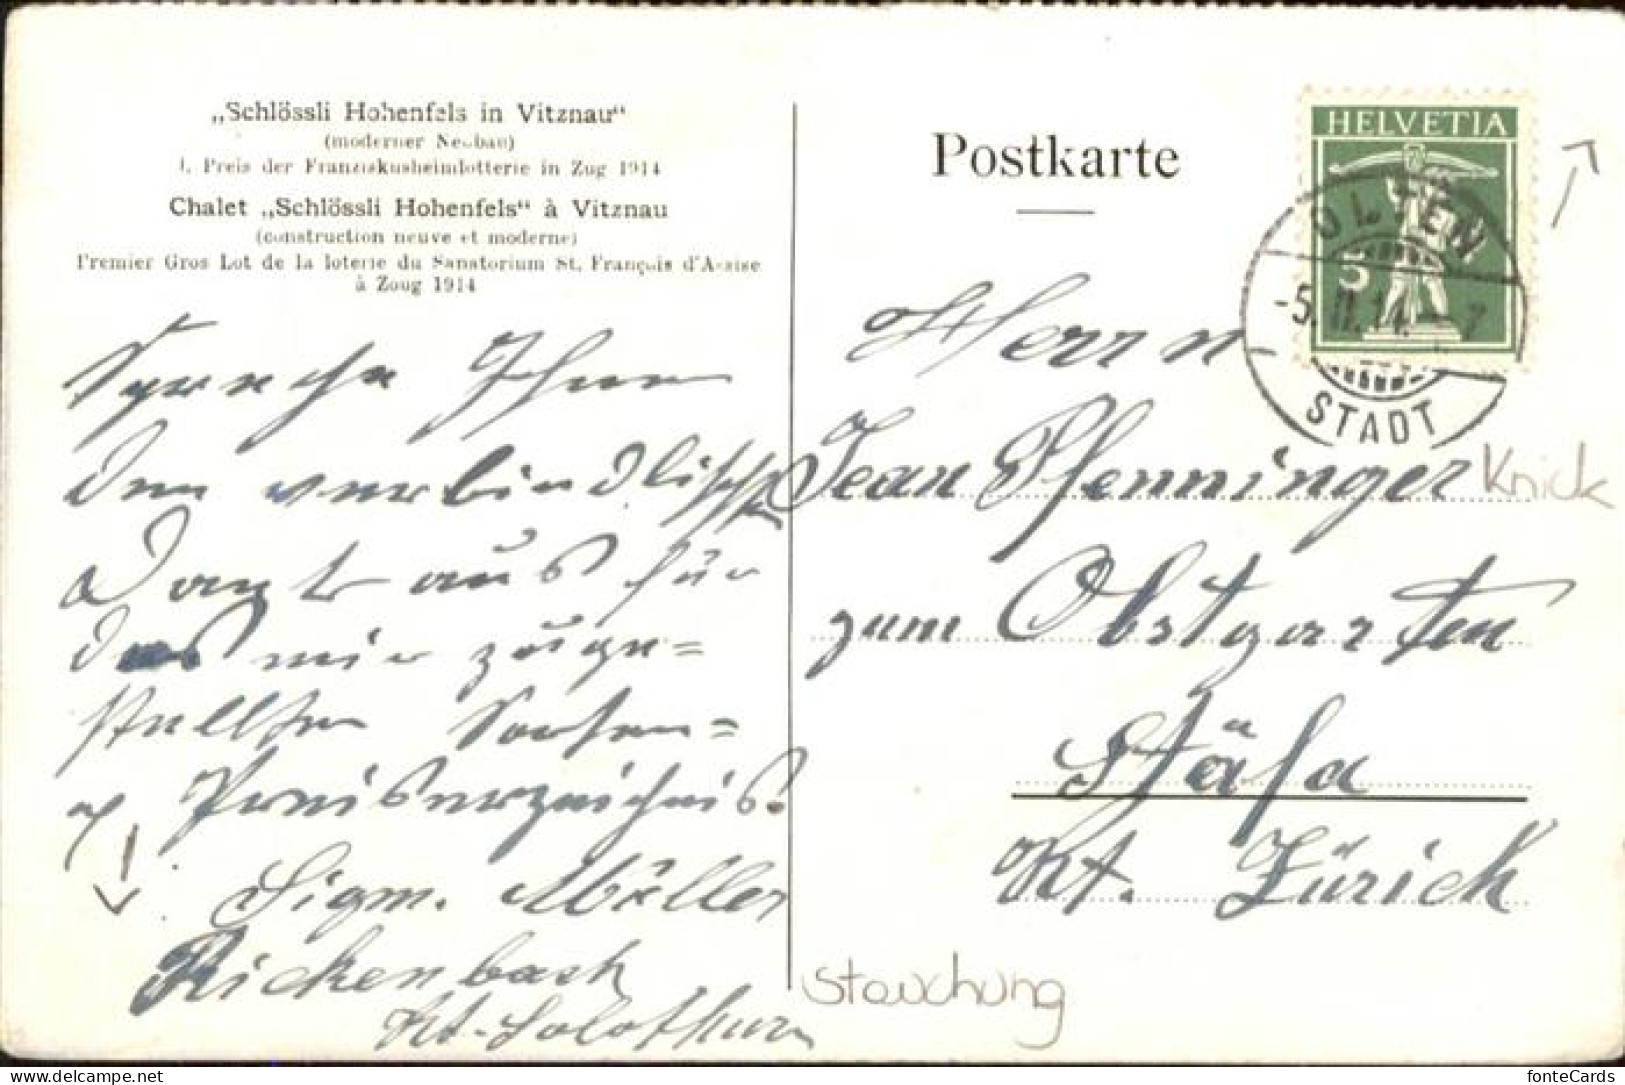 „Schlössli Hohenfels in Vitznau“
(moderner Neubau)
1. Preis der Franziskusheimlotterie in Zug 1914
Chalet „Schlössli Hohenfels“ à Vitznau
(construction neuve et moderne)
Premier Gros Lot de la loterie du Sanatorium St. François d'Assise
à Zoug 1914
Spreche Ihnen
den verbindlichsten
Dank aus für
das mir zuge=
stellten Sorten=
& Preisverzeichnis.
Sigm. Müller
Rickenbach
Kt. Solothurn
Postkarte
HELVETIA
5
OLTEN
-5.II.14. - 7
STADT
Herrn
Jean Pfenninger
zum Obstgarten
Stäfa
Kt. Zürich
Knick
Stauchung
delcampe.net
fonteCards